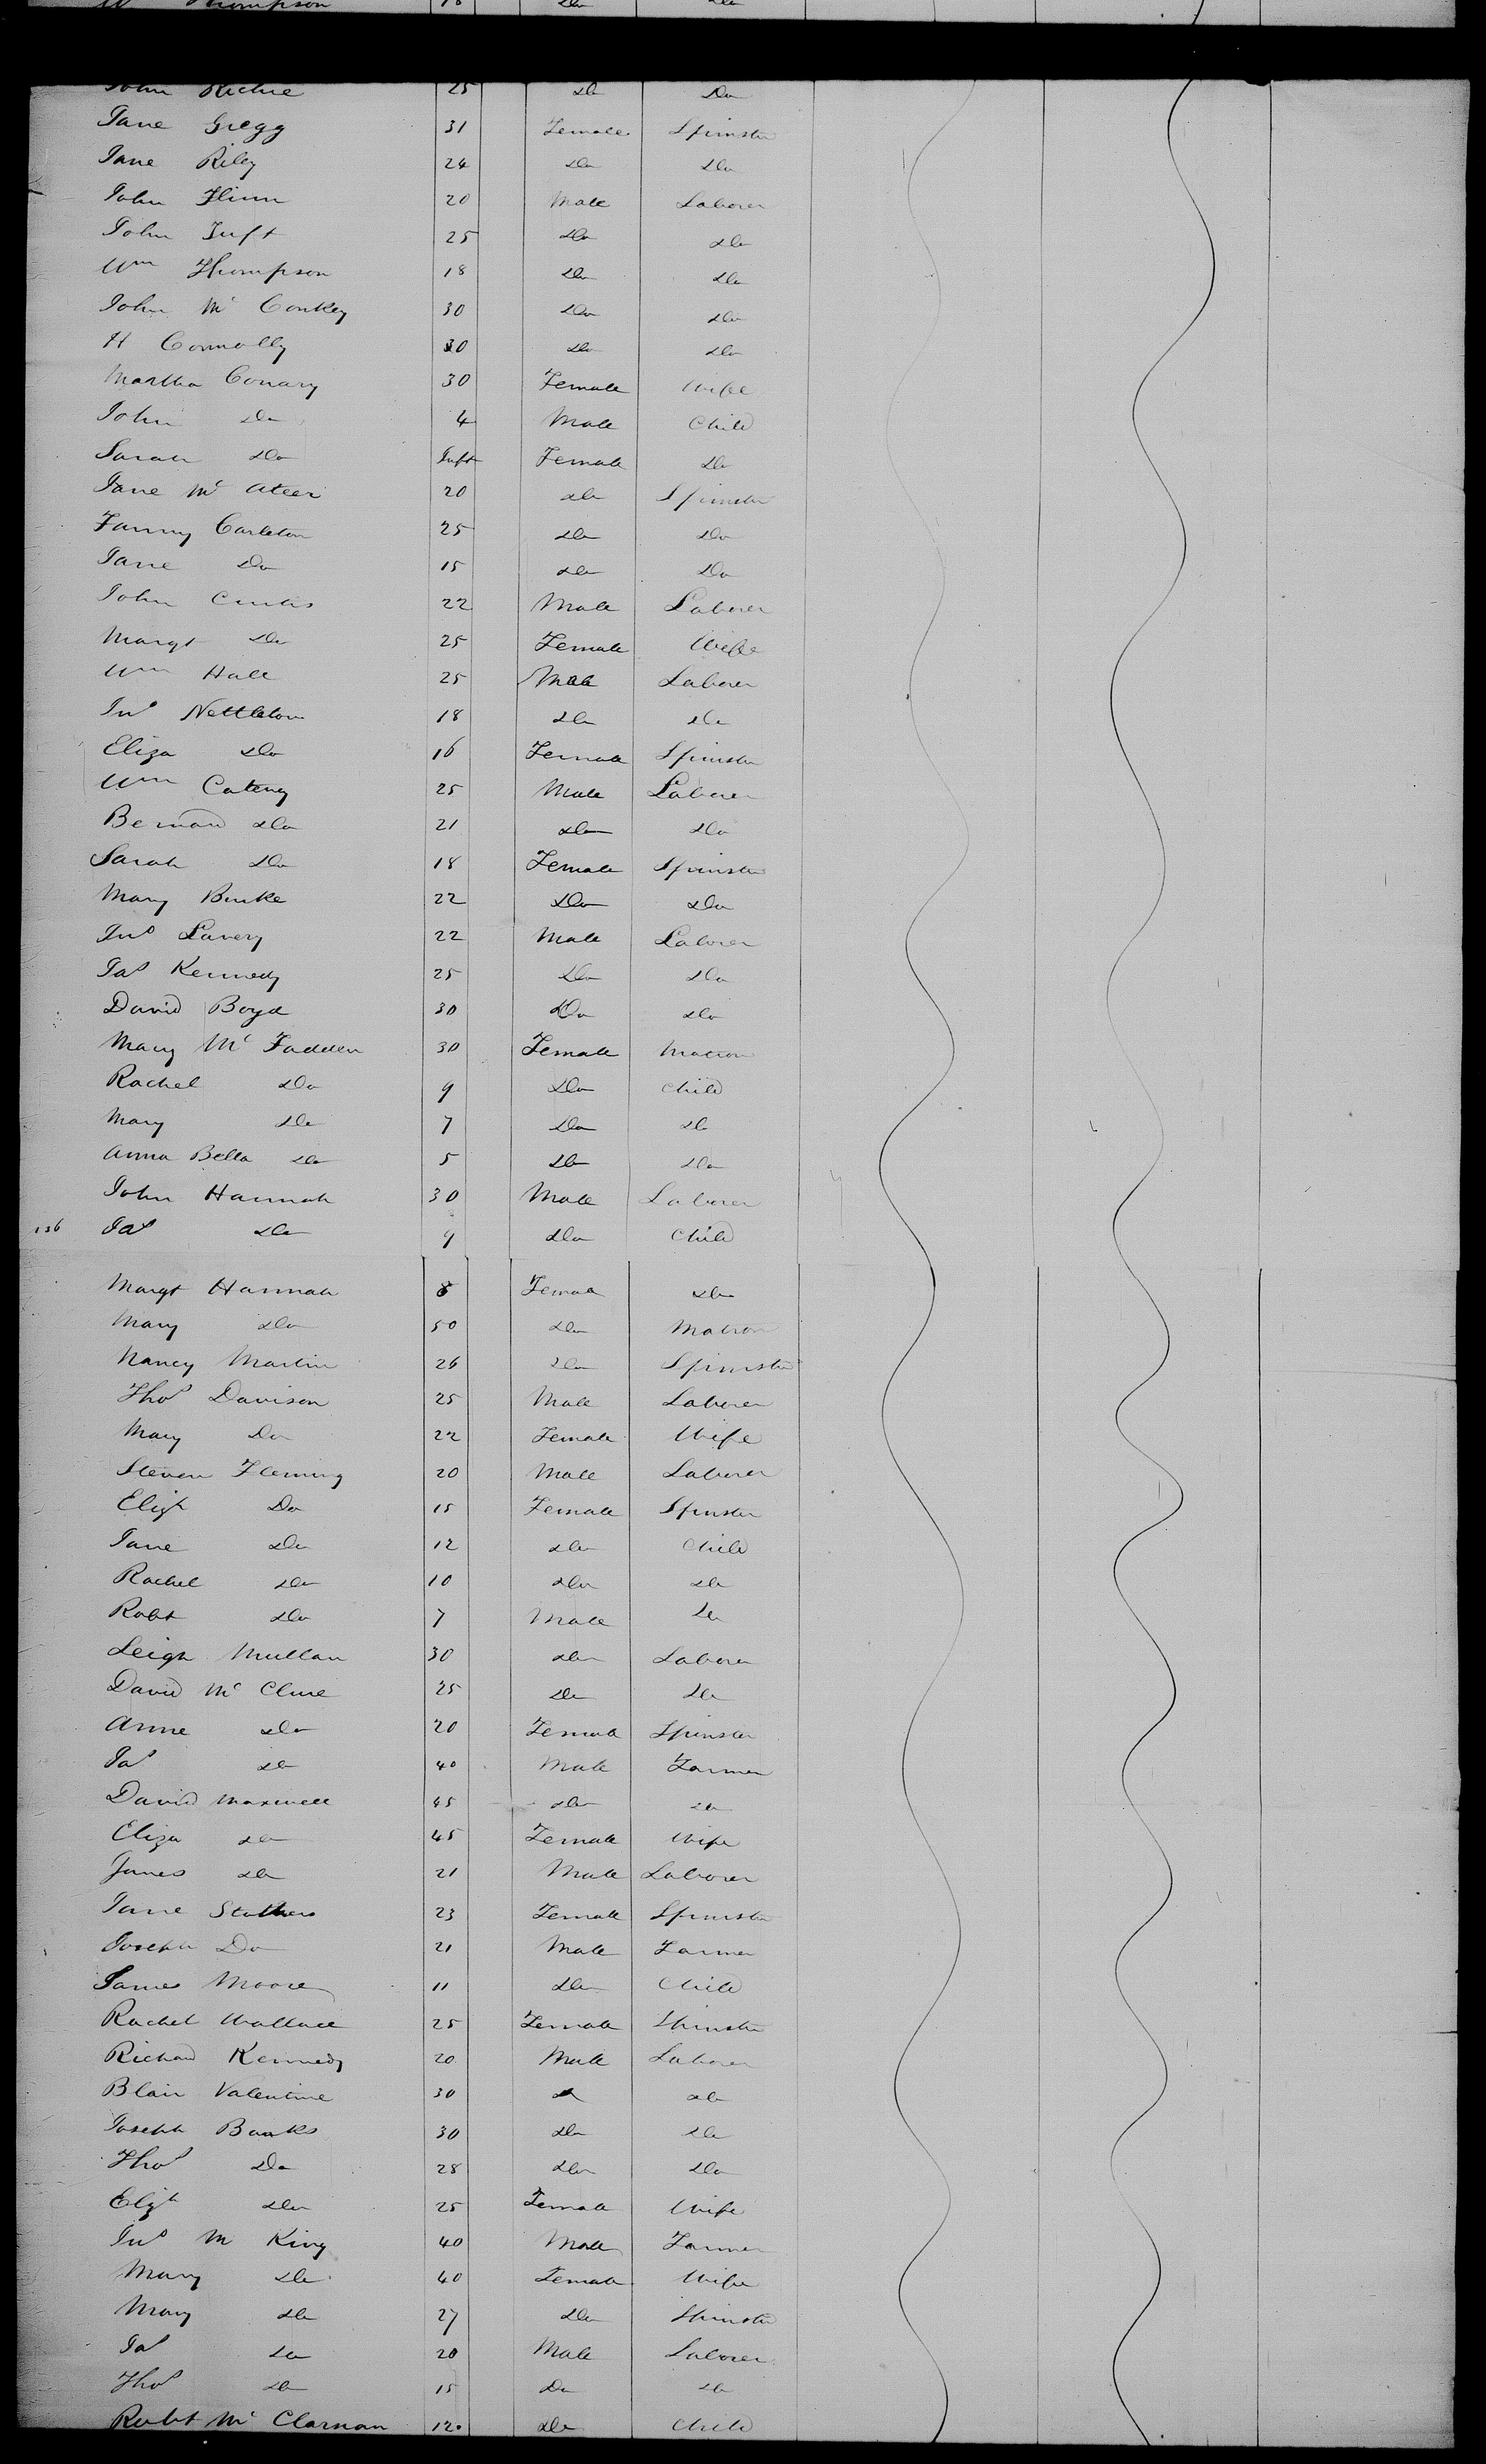 Wm Thompson 18 Do Do
John Richie 25 Do Do
Jane Gregg 31 Female Spinster
Jane Riley 24 Do Do
John Flinn 20 Male Laborer
John Tuft 25 Do Do
Wm Thompson 18 Do Do
John Mc Conkey 30 Do Do
H Connolly 30 Do Do
Martha Conary 30 Female Wife
John Do 4 Male Child
Sarah Do Inft Female Do
Jane Mc Ateer 20 Do Spinster
Fanny Carleton 25 Do Do
Jane Do 15 Do Do
John Curtis 22 Male Laborer
Margt Do 25 Female Wife
Wm Hall 25 Male Laborer
Jno Nettleton 18 Do Do
Eliza Do 16 Female Spinster
Wm Cateny 25 Male Laborer
Bernard Do 21 Do Do
Sarah Do 18 Female Spinster
Mary Burke 22 Do Do
Jno Lavery 22 Male Laborer
Jas Kennedy 25 Do Do
David Boyd 30 Do Do
Mary Mc Fadden 30 Female Matron
Rachel Do 9 Do Child
Mary Do 7 Do Do
Anna Bella Do 5 Do Do
John Hannah 30 Male Laborer
136 Jas Do 9 Do Child
Margt Hannah 8 Female Do
Mary Do 50 Do Matron
Nancy Martin 26 Do Spinster
Thos Davison 25 Male Laborer
Mary Do 22 Female Wife
Steven Fleming 20 Male Laborer
Elizh Do 15 Female Spinster
Jane Do 12 Do Child
Rachel Do 10 Do Do
Robt Do 7 Male Do
Leigh Mullan 30 Do Laborer
David Mc Clure 25 Do Do
Anne Do 20 Female Spinster
Jas Do 40 Male Farmer
David Maxwell 45 Do Do
Eliza Do 45 Female Wife
James Do 21 Male Laborer
Jane Stothers 23 Female Spinster
Joseph Do 21 Male Farmer
James Moore 11 Do Child
Rachel Wallace 25 Female Spinster
Richard Kennedy 20 Male Laborer
Blair Valentine 30 Do Do
Joseph Banks 30 Do Do
Thos Do 28 Do Do
Elizh Do 25 Female Wife
Jno M King 40 Male Farmer
Mary Do 40 Female Wife
Mary Do 27 Do Spinster
Jas Do 20 Male Laborer
Thos Do 15 Do Do
Robt Mc Clarnan 12 Do Child